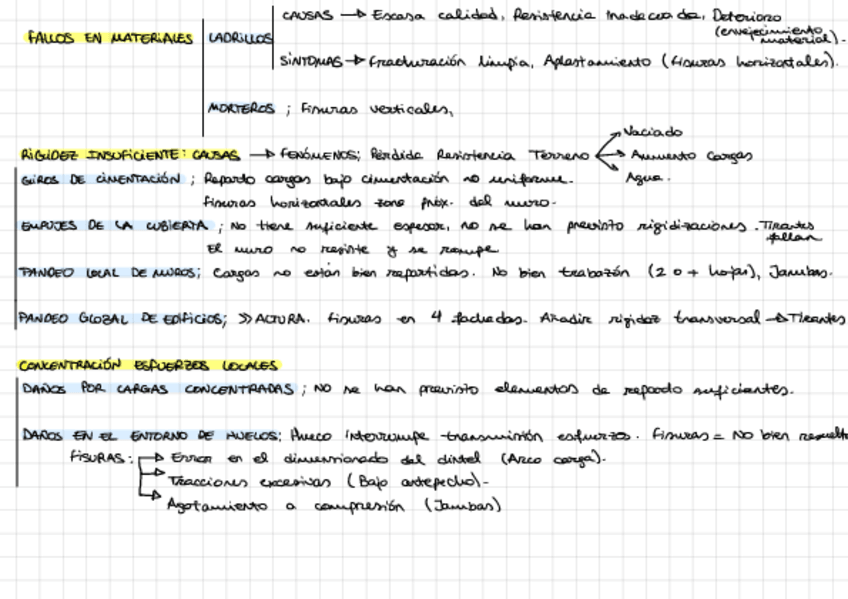 CAUSAS → Escasa calidad, Resistencia inadecuada, Deterioro
(envejecimiento material).
FALLOS EN MATERIALES LADRILLOS
SINTOMAS → Fracturación limpia, Aplastamiento (fisuras horizontales).
MORTEROS ; Fisuras verticales,
Vaciado
RIGIDEZ INSUFICIENTE: CAUSAS → FENÓMENOS; Pérdida Resistencia Terreno → Aumento cargas
Agua.
GIROS DE CIMENTACIÓN ; Reparto cargas bajo cimentación no uniforme.
Fisuras horizontales zona próx. del muro.
EMPUJES DE LA CUBIERTA ; No tiene suficiente espesor, no se han previsto rigidizaciones. Tirantes
fallan
El muro no resiste y se rompe
PANDEO LOCAL DE MUROS; Cargas no están bien repartidas. No bien trabazón (2 o + hojas), Jambas.
PANDEO GLOBAL DE EDIFICIOS; >> ALTURA. Fisuras en 4 fachadas. Añadir rigidez transversal → Tirantes
CONCENTRACIÓN ESFUERZOS LOCALES
DAÑOS POR CARGAS CONCENTRADAS ; NO se han previsto elementos de reparto suficientes.
DAÑOS EN EL ENTORNO DE HUECOS; Hueco interrumpe transmisión esfuerzos. Fisuras = No bien
FISURAS: → Error en el dimensionado del dintel (Arco carga).
→ Tracciones excesivas (Bajo antepecho).
→ Agotamiento a compresión (Jambas)